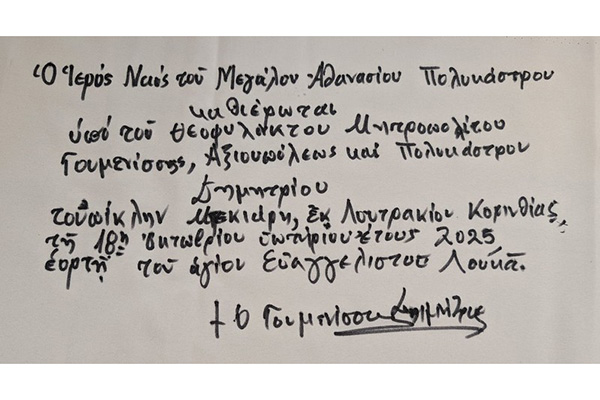 Ὁ Ἱερός Ναός τοῦ Μεγάλου Ἀθανασίου Πολυκάστρου
καθιέρωται
ὑπό τοῦ Θεοφυλάκτου Μητροπολίτου
Γουμενίσσης, Ἀξιουπόλεως καί Πολυκάστρου
Δημητρίου
τοὐπίκλην Μπεκιάρη, ἐκ Λουτρακίου Κορινθίας,
τῇ 18ῃ Ὀκτωβρίου σωτηρίου ἔτους 2025,
ἑορτῇ τοῦ ἁγίου Εὐαγγελιστοῦ Λουκᾶ.
† Ὁ Γουμενίσσης Δημήτριος